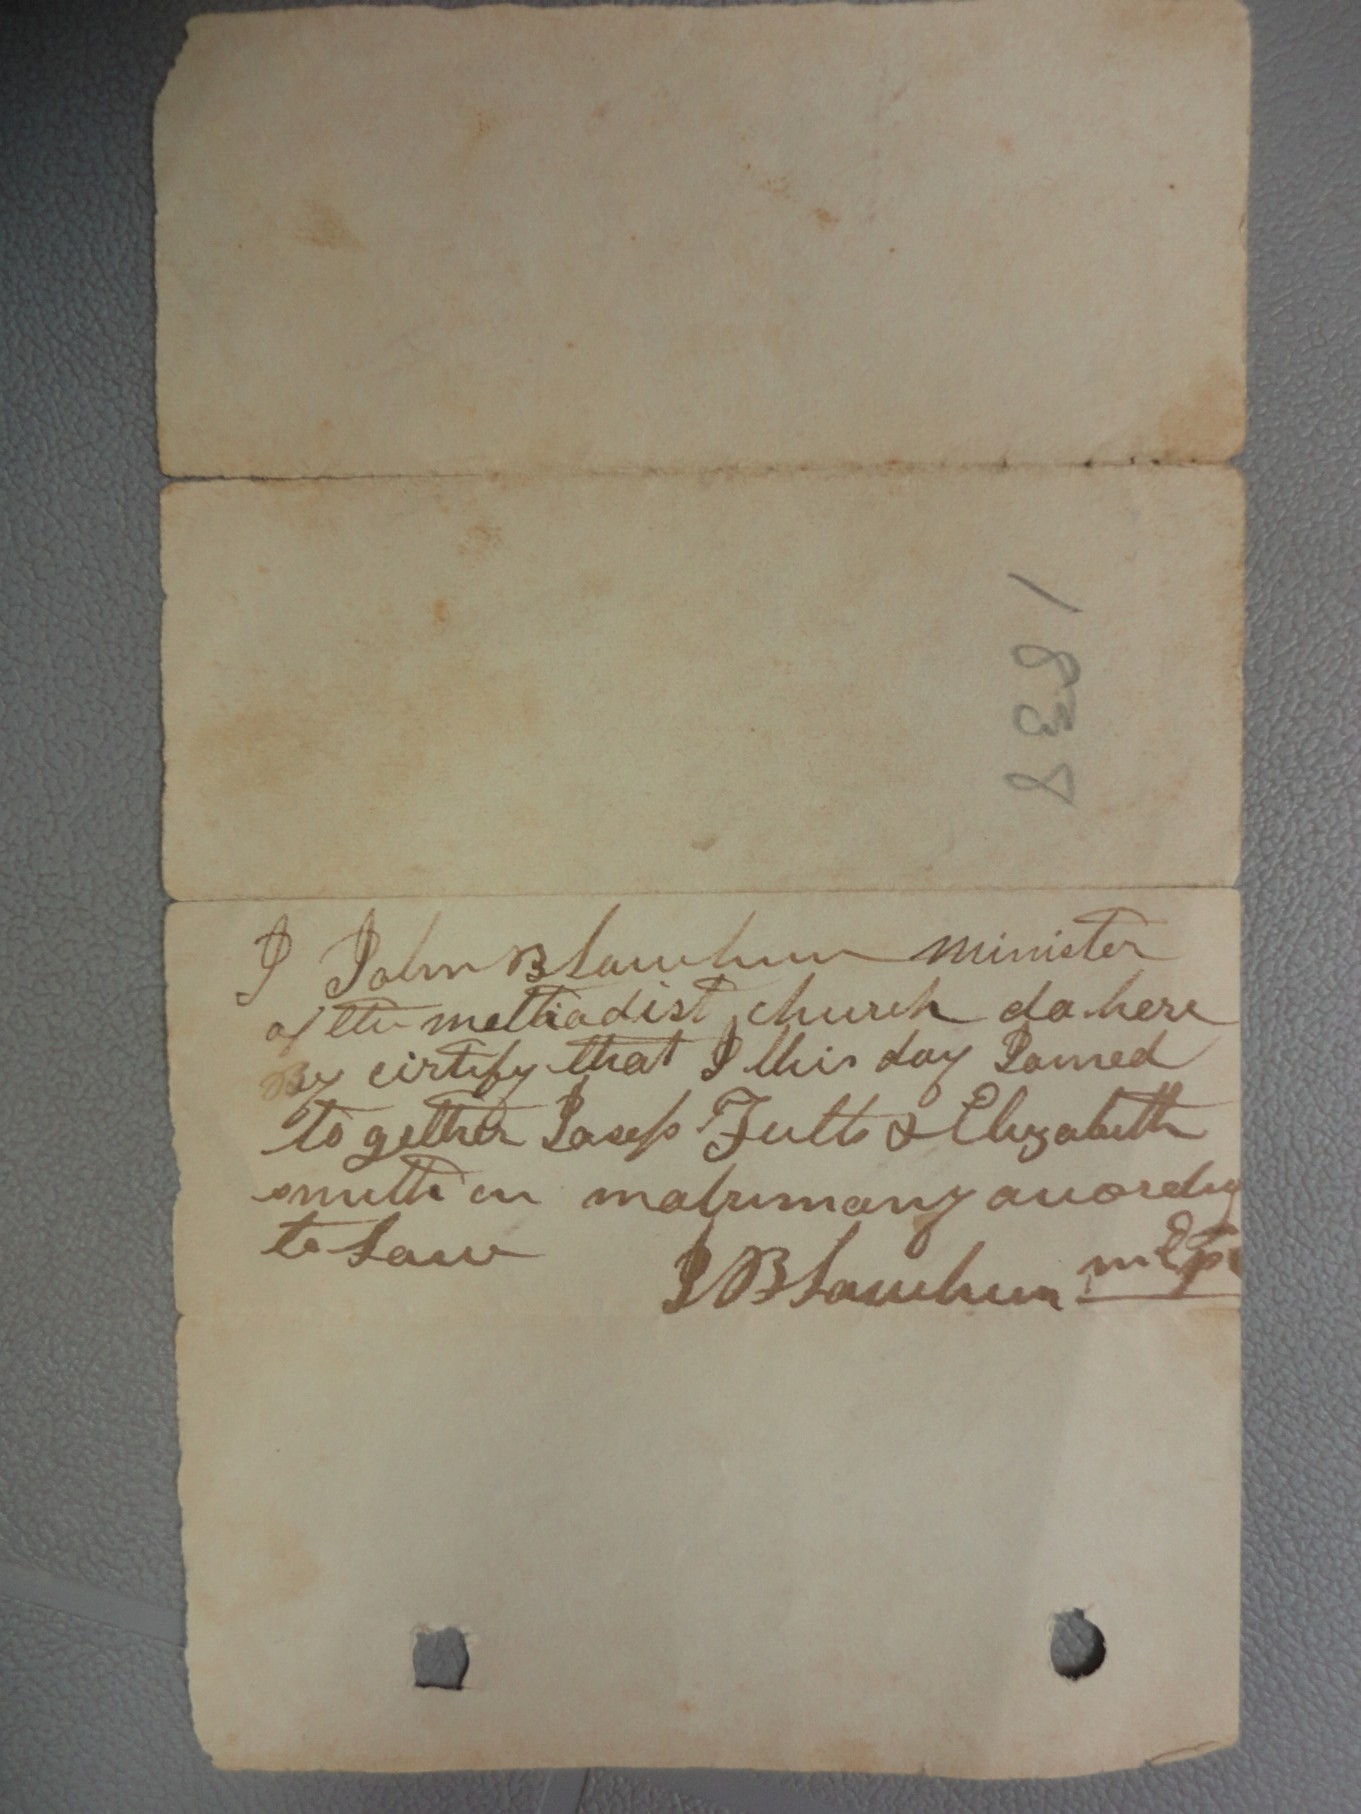 1838
I John B Lawhun minister
of the methodist church do here
By cirtify that I this day Joined
to gether Josep Fults & Elizabeth
smith in matrimony acordig
to Law
J B Lawhun